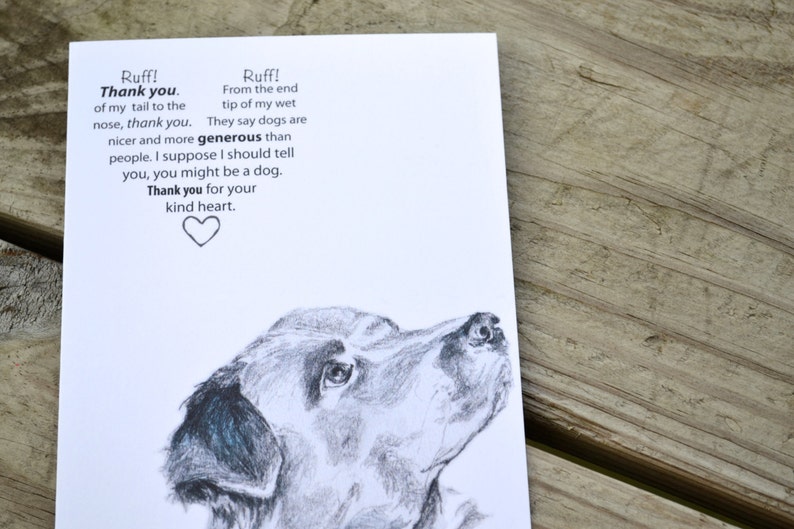 Ruff! Ruff!
Thank you. From the end
of my tail to the tip of my wet
nose, thank you. They say dogs are
nicer and more generous than
people. I suppose I should tell
you, you might be a dog.
Thank you for your
kind heart.